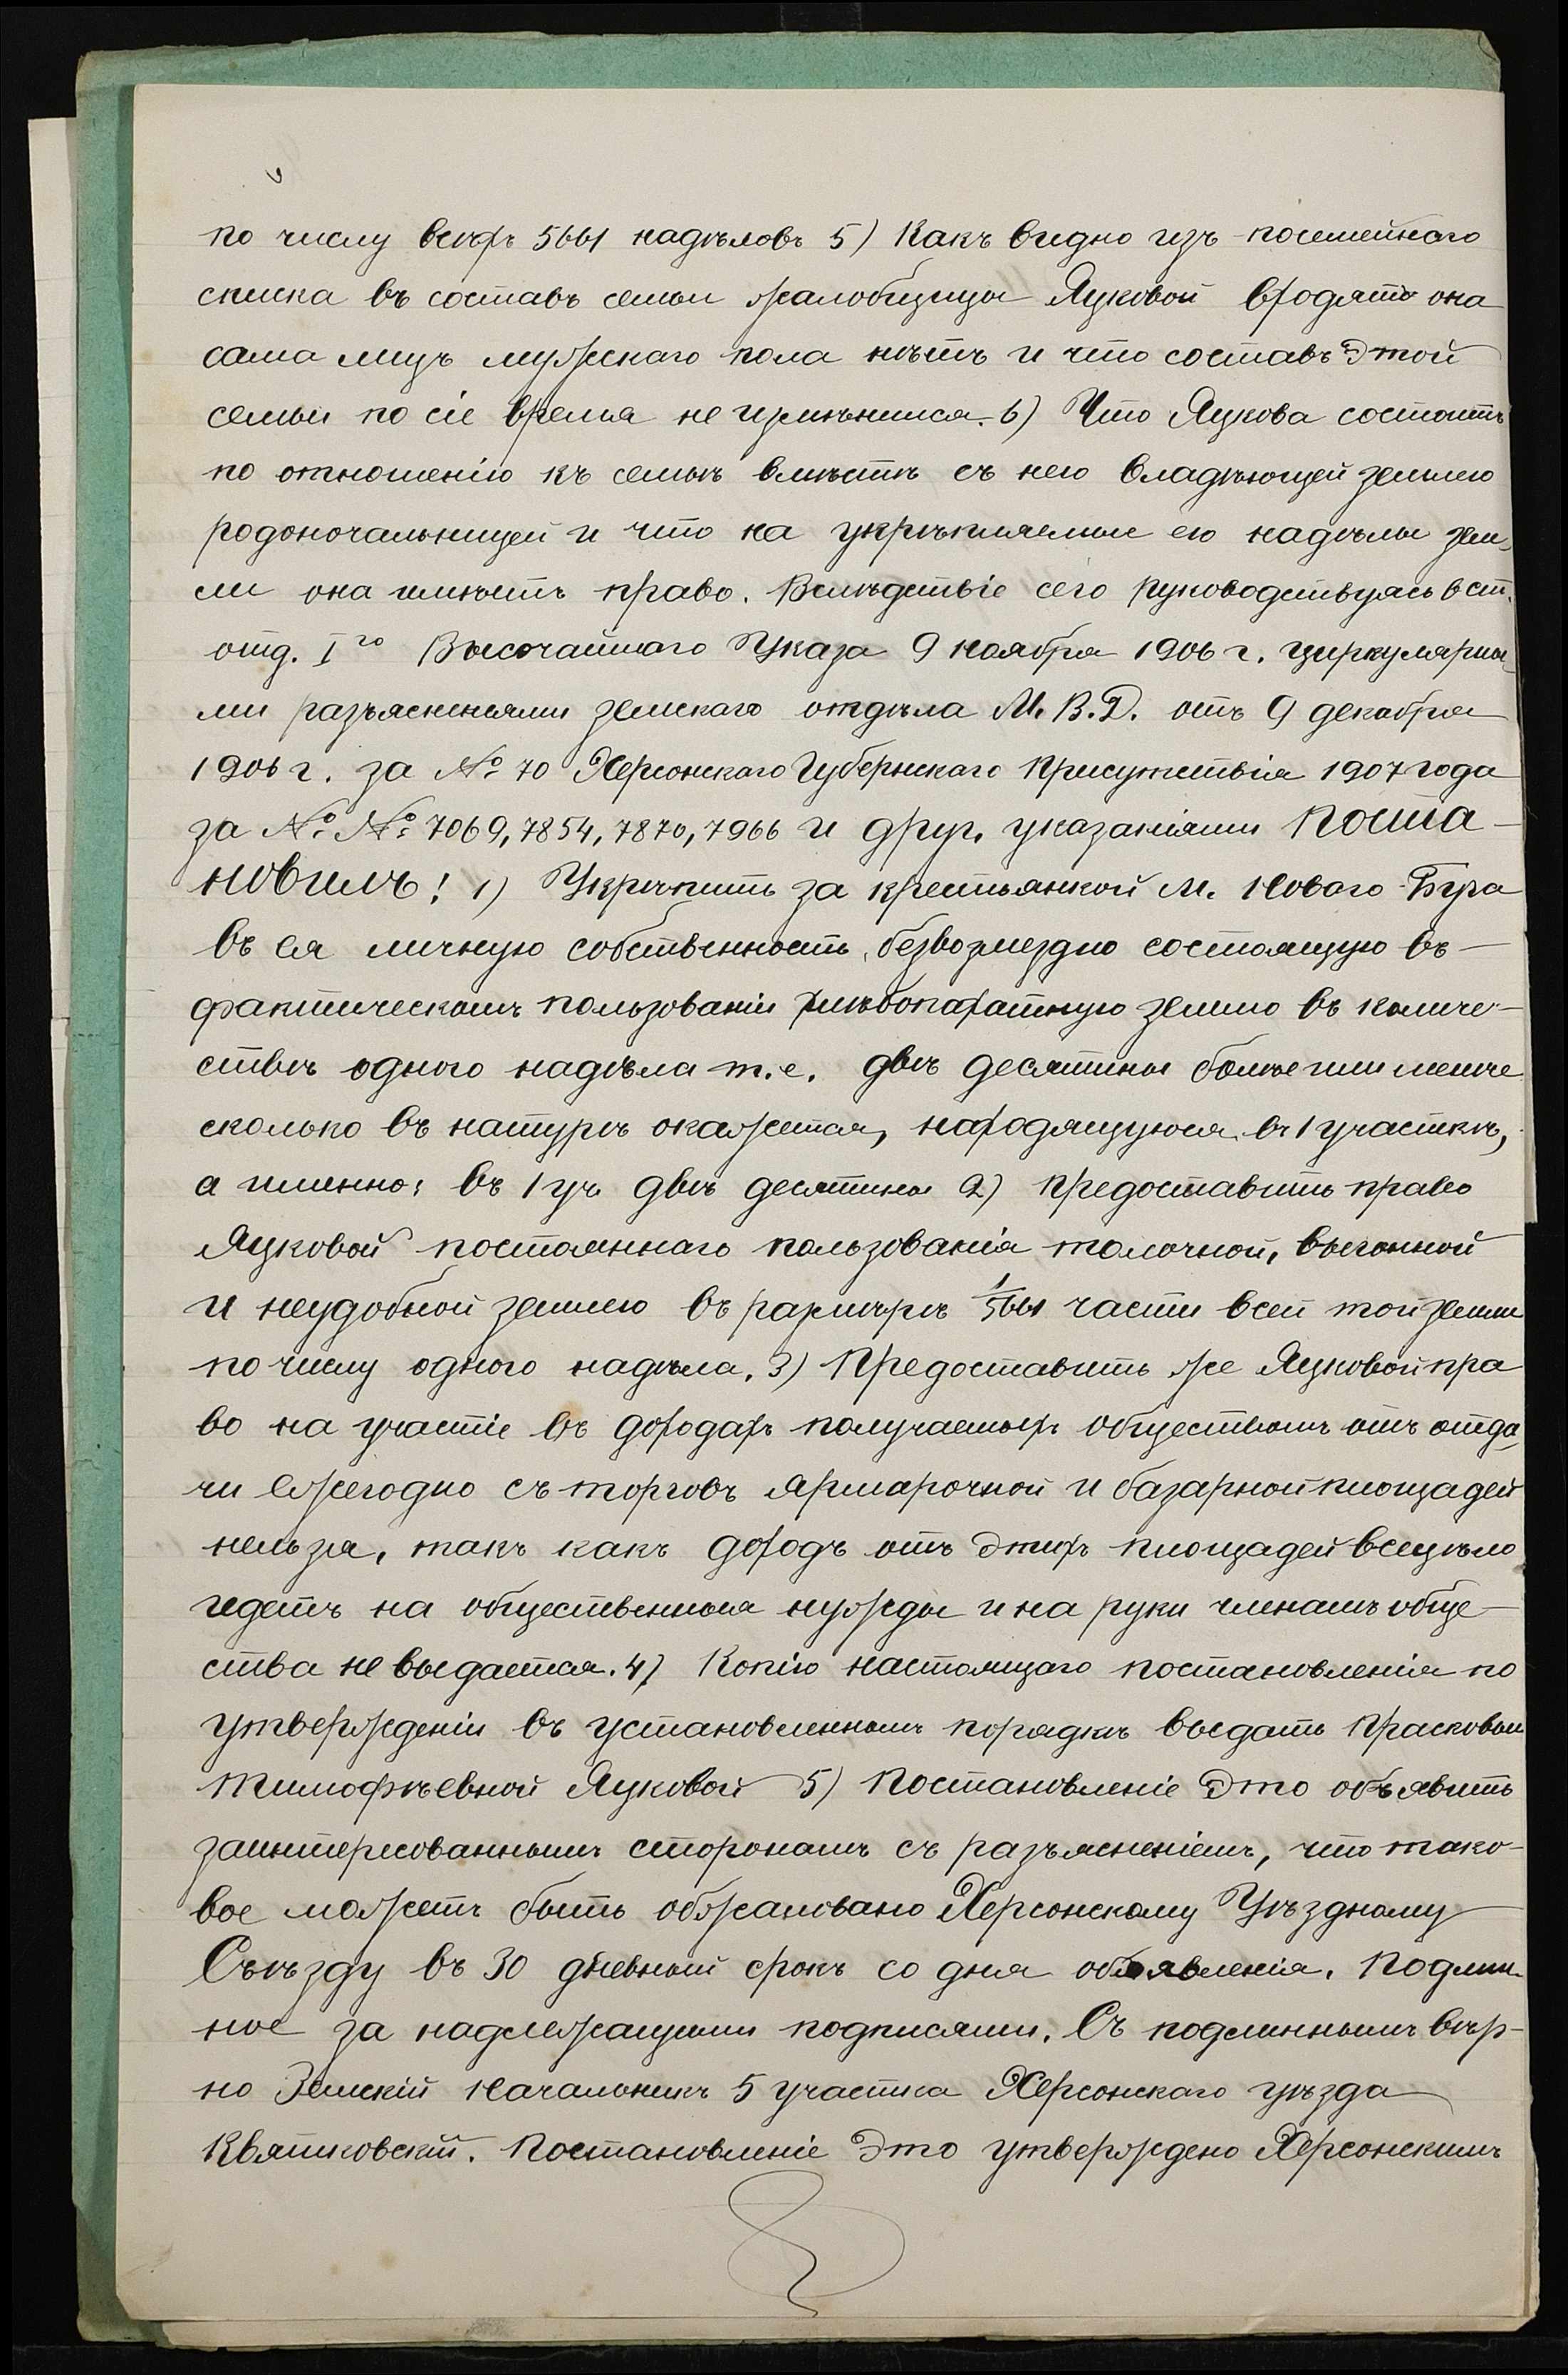 по числу всѣхъ 5661 надѣловъ 5) Какъ видно изъ посемейнаго
списка въ составъ семьи жалобщицы Яцковой входятъ она
сама лицъ мужскаго пола нѣтъ и что составъ этой
семьи по сіе время не измѣнился. 6) Что Яцкова состоитъ
по отношенію къ семьѣ вмѣстѣ съ нею владѣющей землею
родоначальницей и что на укрѣпляемые ею надѣлы зем-
ли она имѣетъ право. Вслѣдствіе сего руководствуясь 6 ст.
отд. I го Высочайшаго Указа 9 ноября 1906 г. циркулярны-
ми разъясненьями земскаго отдѣла М. В. Д. отъ 9 декабря
1906 г. за № 70 Херсонскаго Губернскаго Присутствія 1907 года
за №№ 7069, 7854, 7870, 7966 и друг. указаніями Поста-
новилъ: 1) Укрѣпить за крестьянкой м. Новаго-Буга
въ ея личную собственность, безвозмездно состоящую въ
фактическомъ пользованіи хлѣбопахатную землю въ количе-
ствѣ одного надѣла т. е. двѣ десятины болѣе или менѣе
сколько въ натурѣ окажется, находящуюся въ 1 участкѣ,
а именно: въ 1 уч. двѣ десятины 2) Предоставить право
Яцковой постояннаго пользованія толочной, выгонной
и неудобной землею въ размѣрѣ 1/5661 части всей той земли
по числу одного надѣла. 3) Предоставить же Яцковой пра
во на участіе въ доходахъ получаемыхъ обществомъ отъ отда-
чи ежегодно съ торговъ ярмарочной и базарной площадей
нельзя, такъ какъ доходъ отъ этихъ площадей всецѣло
идетъ на общественныя нужды и на руки членамъ обще-
ства не выдается. 4) Копію настоящаго постановленія по
утвержденіи въ установленномъ порядкѣ выдать Прасковьи
Тимофѣевной Яцковой 5) Постановленіе это объявить
заинтересованнымъ сторонамъ съ разъясненіемъ, что тако-
вое можетъ быть обжаловано Херсонскому Уѣздному
Съѣзду въ 30 дневный срокъ со дня объявленія. Подлин-
ное за надлежащими подписями. Съ подлиннымъ вѣр-
но Земскій Начальникъ 5 участка Херсонскаго уѣзда
Квятковскій. Постановленіе это утверждено Херсонскимъ